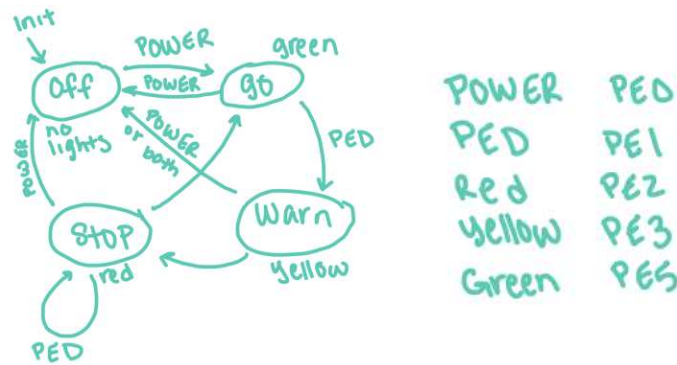 Init
POWER
green
Off
POWER
go
no
lights
POWER
or both
PED
POWER
Stop
Warn
red
yellow
PED
POWER PE0
PED PE1
Red PE2
Yellow PE3
Green PE5